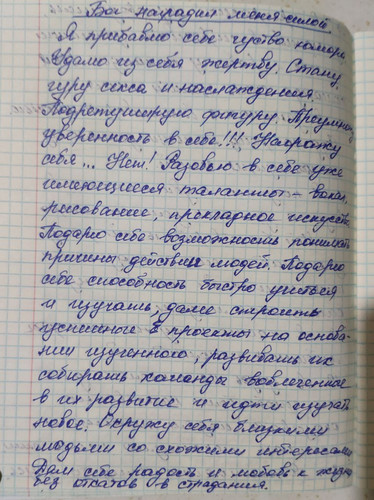 Бог наградил меня силой
Я прибавлю себе чуство юмора
Удалю из себя жертву. Стану
гуру секса и наслаждения.
Подретуширую фигуру. Преумножу
уверенность в себе!!! Награжу
себя... Нет! Разовью в себе уже
имеющиеся таланты - вокал,
рисование, прикладное искуство
Подарю себе возможность понимать
причины действий людей. Подарю
себе способность быстро учиться
и изучать, далее строить
успешные проекты на основа-
нии изученного, развивать их
собирать команды вовлеченные
в их развитие и идти изучать
новое. Окружу себя близкими
людьми со схожими интересами
Дам себе радость и любовь к жизни
без откатов в страдания.